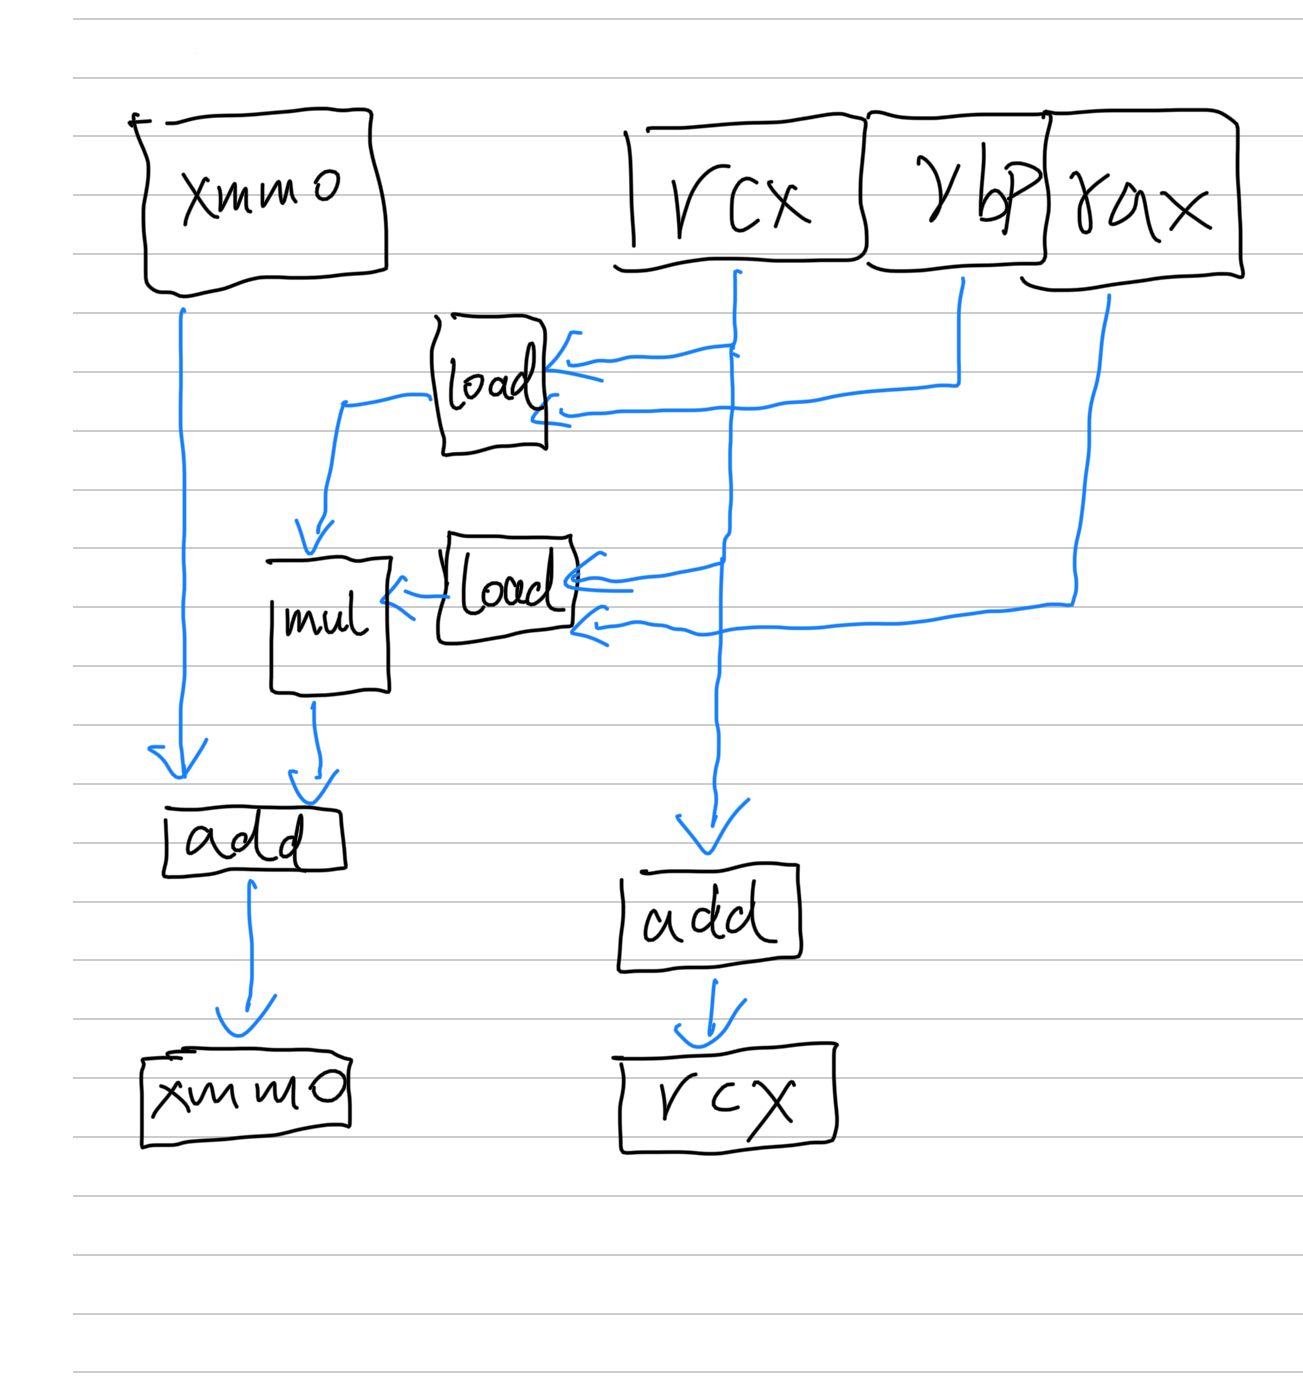 xmm0 rcx rbp rax
load
load
mul
add
add
xmm0 rcx